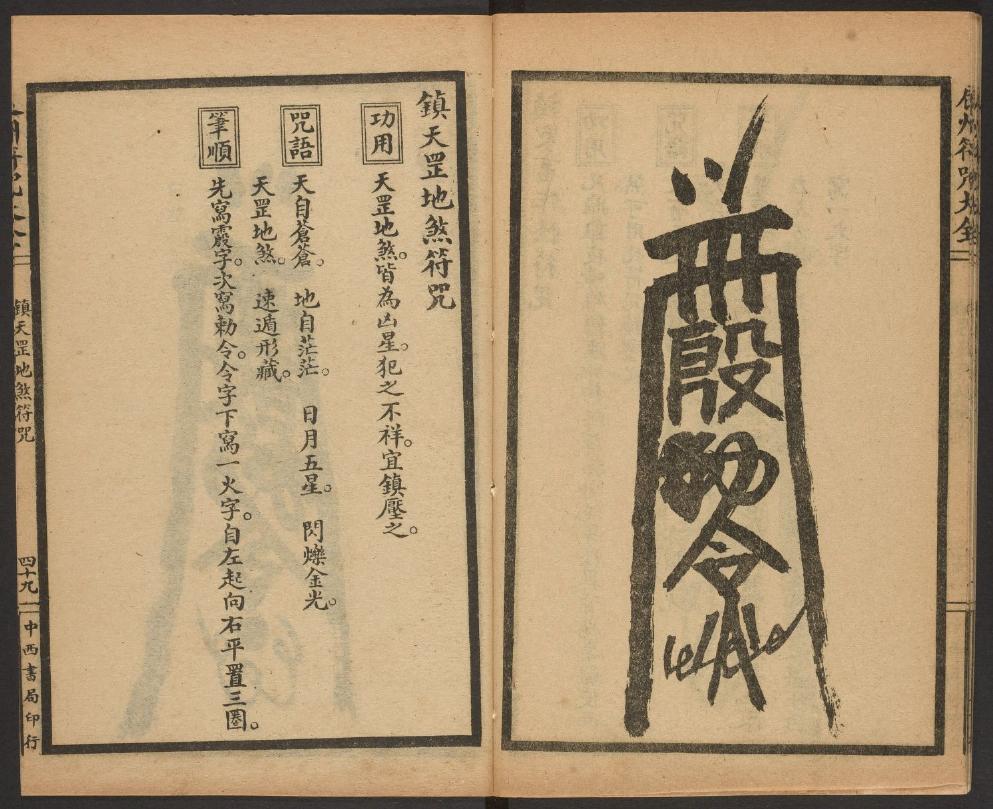 鎮天罡地煞符咒
功用
天罡地煞。皆為凶星。犯之不祥。宜鎮壓之。
咒語
天自蒼蒼。 地自茫茫。 日月五星。 閃爍金光。
天罡地煞。 速遁形藏。
筆順
先寫霞字。次寫勅令。令字下寫一火字。自左起向右平置三圈。
鎮天罡地煞符咒
四十九
中西書局印行
勅令
符咒大全